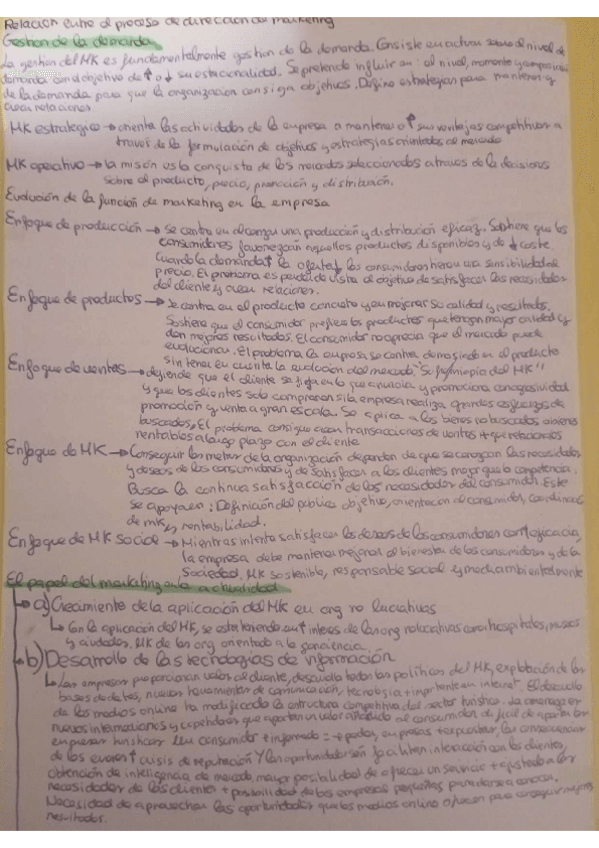 Relación entre el proceso de dirección de marketing
Gestión de la demanda
La gestión del MK es fundamentalmente gestión de la demanda. Consiste en actuar sobre el nivel de
demanda con el objetivo de ↑ o ↓ su estacionalidad. Se pretende influir en: el nivel, momento y composición
de la demanda para que la organización consiga objetivos. Define estrategias para mantener y
crear relaciones.
MK estratégico → orienta las actividades de la empresa a mantener o ↑ sus ventajas competitivas a
través de la formulación de objetivos y estrategias orientados al mercado
MK operativo → la misión es la conquista de los mercados seleccionados a través de la decisiones
sobre el producto, precio, promoción y distribución.
Evolución de la función de marketing en la empresa
Enfoque de producción → se centra en alcanzar una producción y distribución eficaz. Sostiene que los
consumidores favorecerán aquellos productos disponibles y de ↓ coste.
Cuando la demanda ↑ la oferta ↓ los consumidores tienen una sensibilidad al
precio. El problema es perder de vista el objetivo de satisfacer las necesidades
del cliente y crear relaciones.
Enfoque de productos → se centra en el producto concreto y en mejorar su calidad y resultados.
Sostiene que el consumidor prefiere los productos que tengan mayor calidad y
den mejores resultados. El consumidor no aprecia que el mercado puede
evolucionar. El problema la empresa se centra demasiado en el producto
sin tener en cuenta la evolución del mercado. "miopía del MK"
Enfoque de ventas → defiende que el cliente se fija en lo que anuncia y promociona con agresividad
y que los clientes solo compraran si la empresa realiza grandes esfuerzos de
promoción y venta a gran escala. Se aplica a los bienes no buscados
buscados. El problema consigue crear transacciones de ventas + que relaciones
rentables a largo plazo con el cliente
Enfoque de MK → Conseguir las metas de la organización dependen de que se conozcan las necesidades
y deseos de los consumidores y de satisfacer a los clientes mejor que la competencia.
Busca la continua satisfacción de las necesidades del consumidor. Este
se apoya en: Definición del público objetivo, orientación al consumidor, coordinación
de mk y rentabilidad.
Enfoque de MK social → Mientras intenta satisfacer los deseos de los consumidores con ↑ eficacia,
la empresa debe mantener mejorar el bienestar de los consumidores y de la
Sociedad. MK sostenible, responsable social y mediambientalmente
El papel del marketing en la actualidad
a) Crecimiento de la aplicación del MK en org no lucrativas
↳ Con la aplicación del MK, se está teniendo un ↑ interés de las org no lucrativas como hospitales, museos
y ciudades. MK de las org orientado a la
b) Desarrollo de las tecnologías de información
↳ Las empresas proporcionan valor al cliente, desarrolla todas las políticas del MK, explotación de las
bases de datos, nuevas herramientas de comunicación, tecnología + importante en internet. El desarrollo
de los medios online ha modificado la estructura competitiva del sector turístico. La emergen
nuevos intermediarios y que aportan un valor añadido al consumidor de difícil de aportar las
empresas turísticas. Un consumidor + informado = + poder, empresas + expuestas, las consecuencias
de los ↑ crisis de reputación. Y las oportunidades son facilitan interacción con los clientes,
obtención de inteligencia de mercado, mayor posibilidad de ofrecer un servicio + ajustado a las
necesidades de los clientes + posibilidad de las empresas pequeñas para darse a conocer.
Necesidad de aprovechar las oportunidades que los medios online ofrecen para conseguir mejores
resultados.